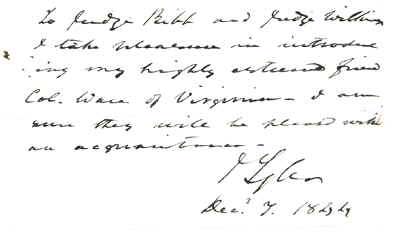 To Judge Bibb and Judge Wilkins
I take pleasure in introduc
ing my highly esteemed friend
Col. Ware of Virginia - I am
sure they will be pleased with
an acquaintance -
J Tyler
Decr 7. 1844